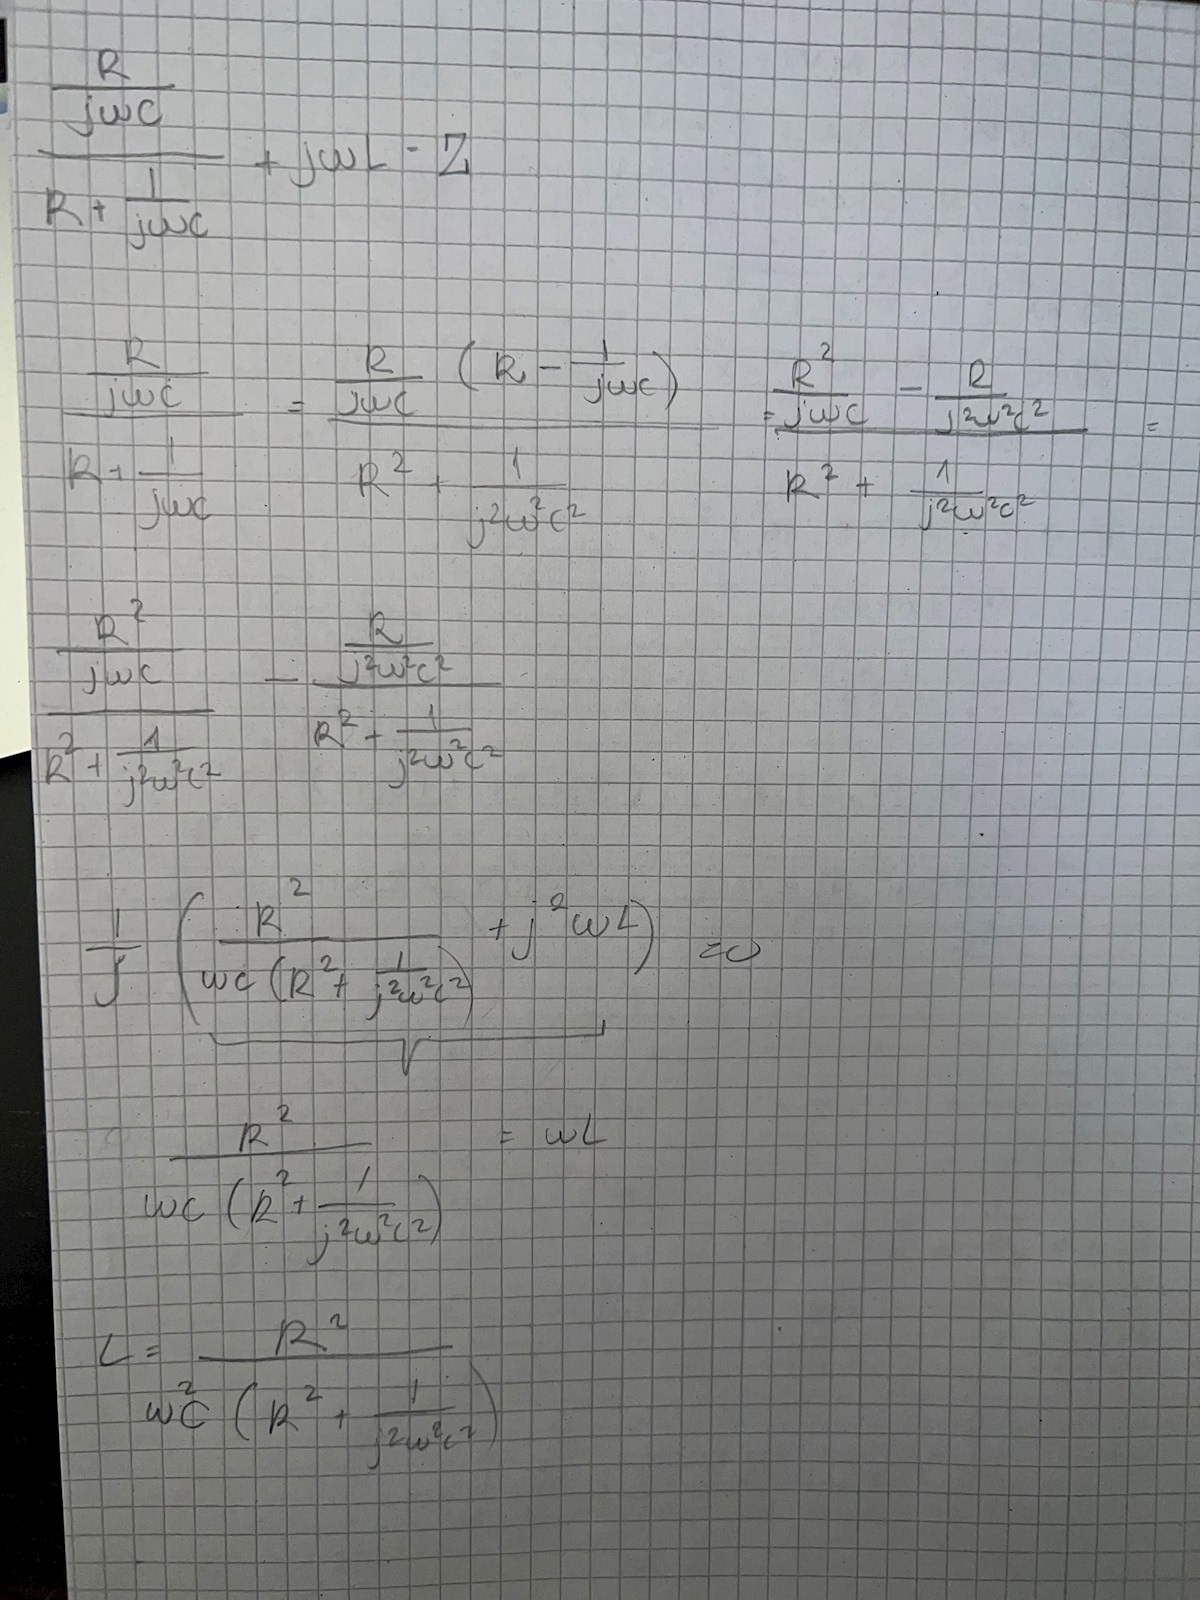 \frac{\frac{R}{jωC}}{R + \frac{1}{jωC}} + jωL = Z
\frac{\frac{R}{jωC}}{R + \frac{1}{jωC}} = \frac{\frac{R}{jωC} (R - \frac{1}{jωC})}{R^2 + \frac{1}{j^2ω^2C^2}} = \frac{\frac{R^2}{jωC} - \frac{R}{j^2ω^2C^2}}{R^2 + \frac{1}{j^2ω^2C^2}} =
\frac{\frac{R^2}{jωC}}{R^2 + \frac{1}{j^2ω^2C^2}} - \frac{\frac{R}{j^2ω^2C^2}}{R^2 + \frac{1}{j^2ω^2C^2}}
\frac{1}{j} (\frac{R^2}{ωC (R^2 + \frac{1}{j^2ω^2C^2})} + j^2ωL) = 0
\frac{R^2}{ωC (R^2 + \frac{1}{j^2ω^2C^2})} = ωL
L = \frac{R^2}{ω^2C (R^2 + \frac{1}{j^2ω^2C^2})}